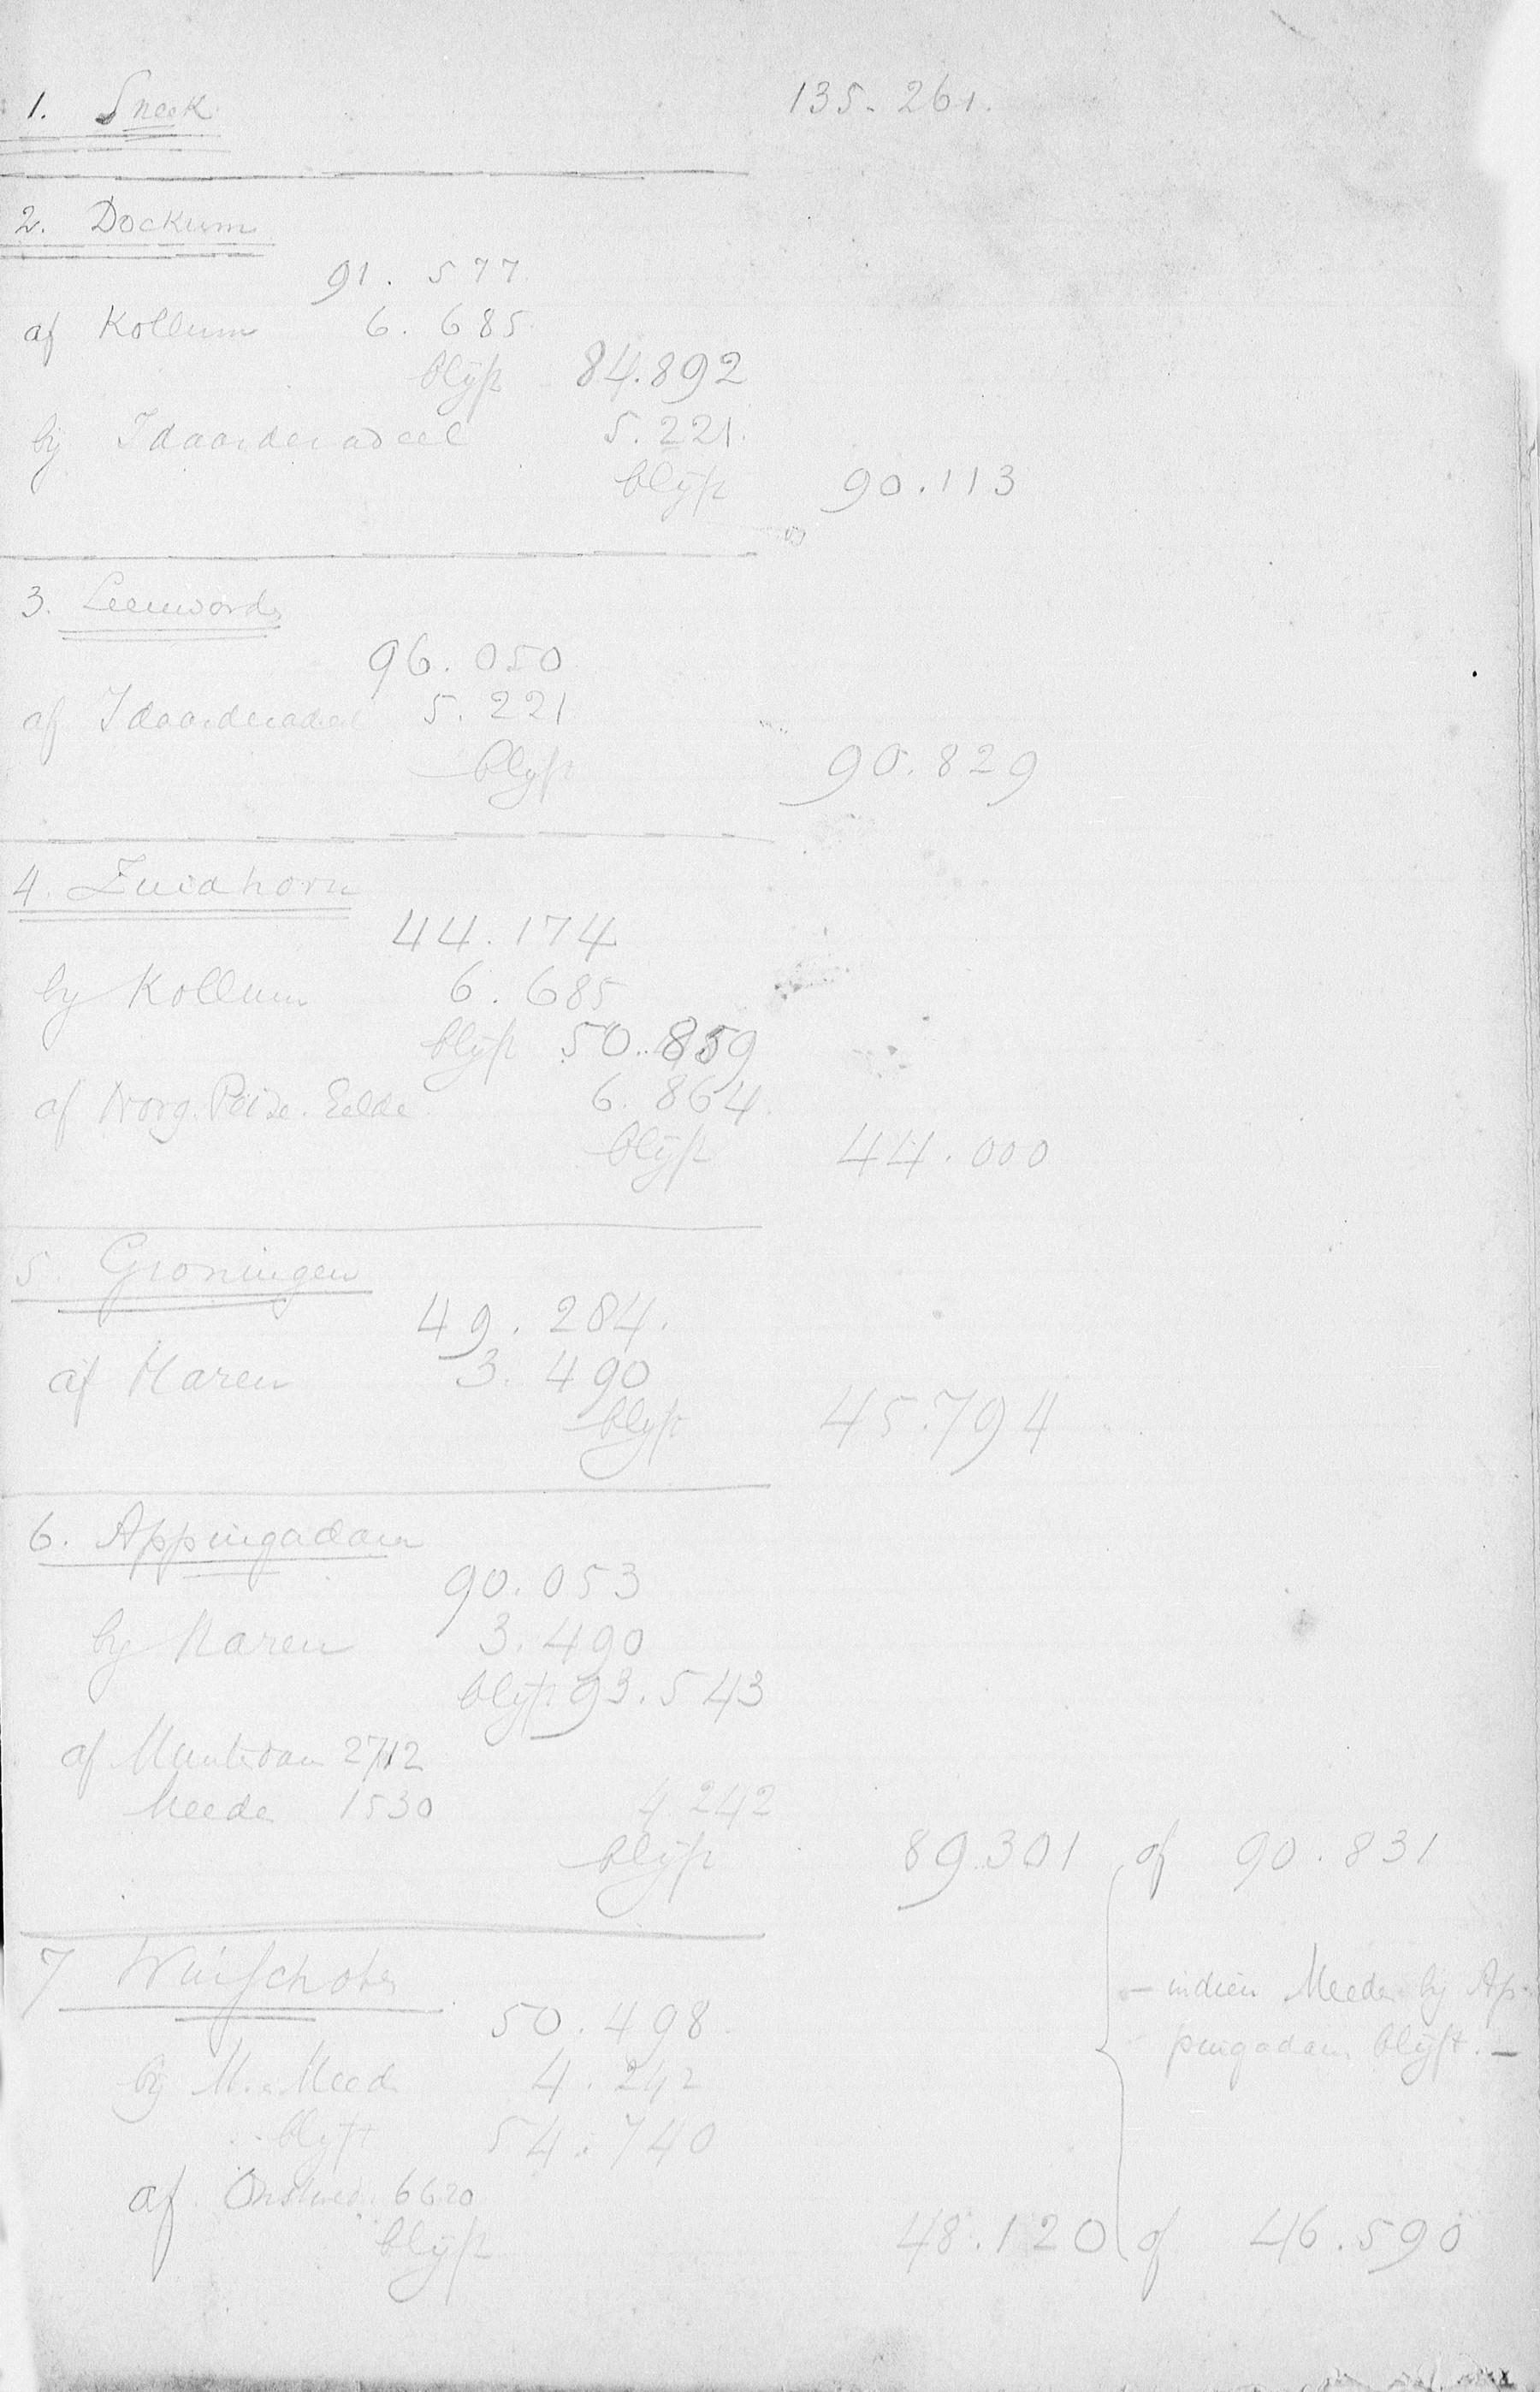 1. Sneek 135.261.
2. Dockum
91.577
af Kollum 6.685
blijft 84.892
bij Idaarderadeel 5.221.
blijft 90.113
3. Leeuward
96.050
af Idaarderadeel 5.221
blijft 90.829
4. Zuidhorn
44.174
by Kollum 6.685
blijft 50.859
af Norg. Peize. Eelde 6.864
blijft 44.000
5. Groningen
49.284.
af Haren 3.490
blijft 45.794
6. Appingadam
90.053
by Haren 3.490
blijft 93.543
af Muntendam 2712
Meeden 1530 4.242
blijft 89.301 of 90.831
7 Winschoten
50.498
— indien Meeden bij Ap-
pingadam blijft. —
bij M. Meed 4.242
blijft 54.740
af Onstwed. 6620
blijft 48.120 of 46.590